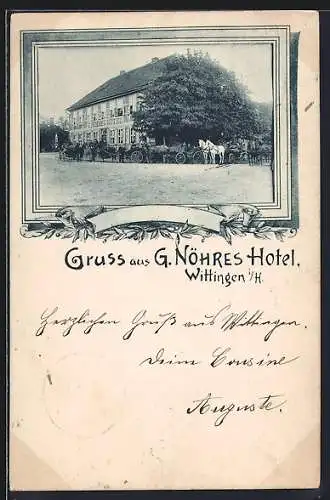 Gruss aus G. NÖHRES Hotel.
Wittingen i/H.
Herzlichen Gruß aus Wittingen.
Deine Cousine
Auguste.